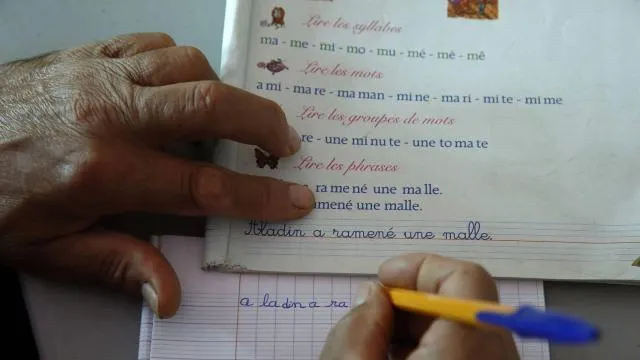 Lire les syllabes
ma - me - mi - mo - mu - mé - mè - mê
Lire les mots
a mi - ma re - ma man - mi ne - ma ri - mi te - mi me
Lire les groupes de mots
re - une mi nu te - une to ma te
Lire les phrases
a ra me né une ma lle.
ramené une malle.
Aladin a ramené une malle.
a la din a ra